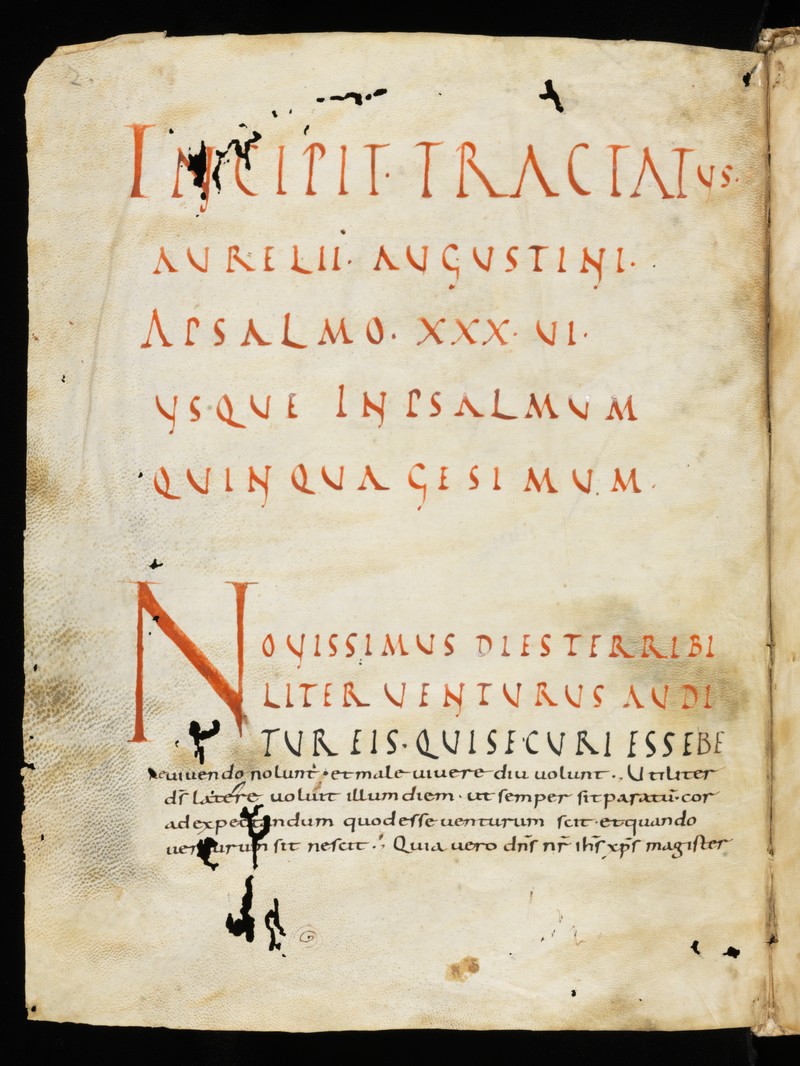 2.
INCIPIT · TRACTATUS ·
AURELII · AUGUSTINI ·
APSALMO · XXX · UI ·
USQUE INPSALMUM
QUINQUAGESIMUM ·
NOUISSIMUS DIES TERRIBI
LITER UENTURUS AUDI
TUR EIS · QUI SECURI ESSE BE
ne uiuendo nolunt · et male uiuere diu uolunt ·, Utiliter
ds̄ latere uoluit illum diem · ut semper sit paratū cor
ad expectandum quod esse uenturum scit · et quando
uenturum sit nescit · Quia uero dn̄s nr̄ ih̄s xp̄s magister